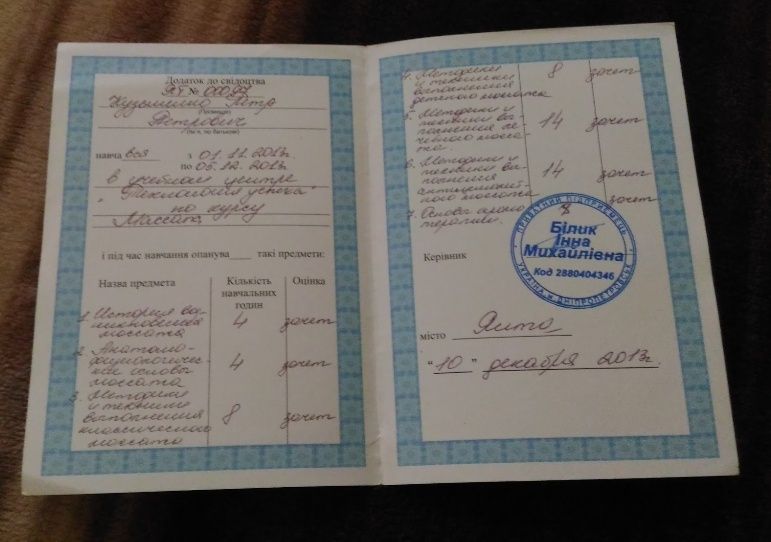 Додаток до свідоцтва
ЯТ № 00087
Кузьменко Петр
(Прізвище)
Петрович
(ім'я, по батькові)
навча вся з 01.11.2013г.
по 05.12.2013
в учебном центре
"Технология успеха"
по курсу
Массаж
і під час навчання опанува такі предмети:
Назва предмета
Кількість навчальних годин
Оцінка
1. История воз-
никновения
массажа 4 зачет
2. Анатомо-
физиологичес-
кие основы
массажа 4 зачет
3. Методики
и техники
выполнения
классического
массажа 8 зачет
4. Методики
и техники
выполнения
детского массажа 8 зачет
5. Методики и
техники вы-
полнения ле-
чебного масса-
жа. 14 зачет
6. Методики и
техники вы-
полнения
антицеллюлит-
ного массажа 14 зачет
7. Основы арома-
терапии. 8 зачет
Керівник
ПРИВАТНИЙ ПІДПРИЄМЕЦЬ
Білик
Інна
Михайлівна
Код 2880404346
УКРАЇНА м. ДНІПРОПЕТРОВСЬК
місто Ялта
"10" декабря 2013г.